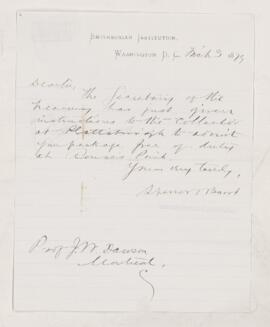 SMITHSONIAN INSTITUTION.
WASHINGTON D. C. Mch 3 1879
Dear Sir, the Secretary of the
Treasury has just given
instructions to the Collector
at Plattsburgh to admit
your package free of duty
at Rouses Point.
Yours very truly,
Spencer F Baird
Prof J. W. Dawson
Montreal.